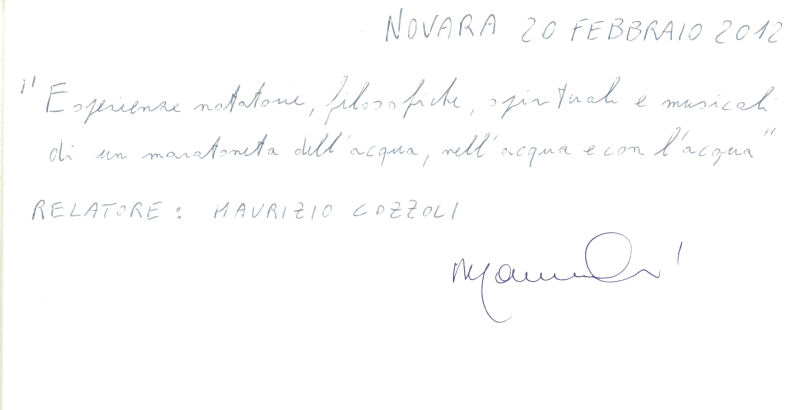 NOVARA 20 FEBBRAIO 2012
"Esperienze natatorie, filosofiche, spirituali e musicali
di un maratoneta dell'acqua, nell'acqua e con l'acqua"
RELATORE: MAURIZIO COZZOLI